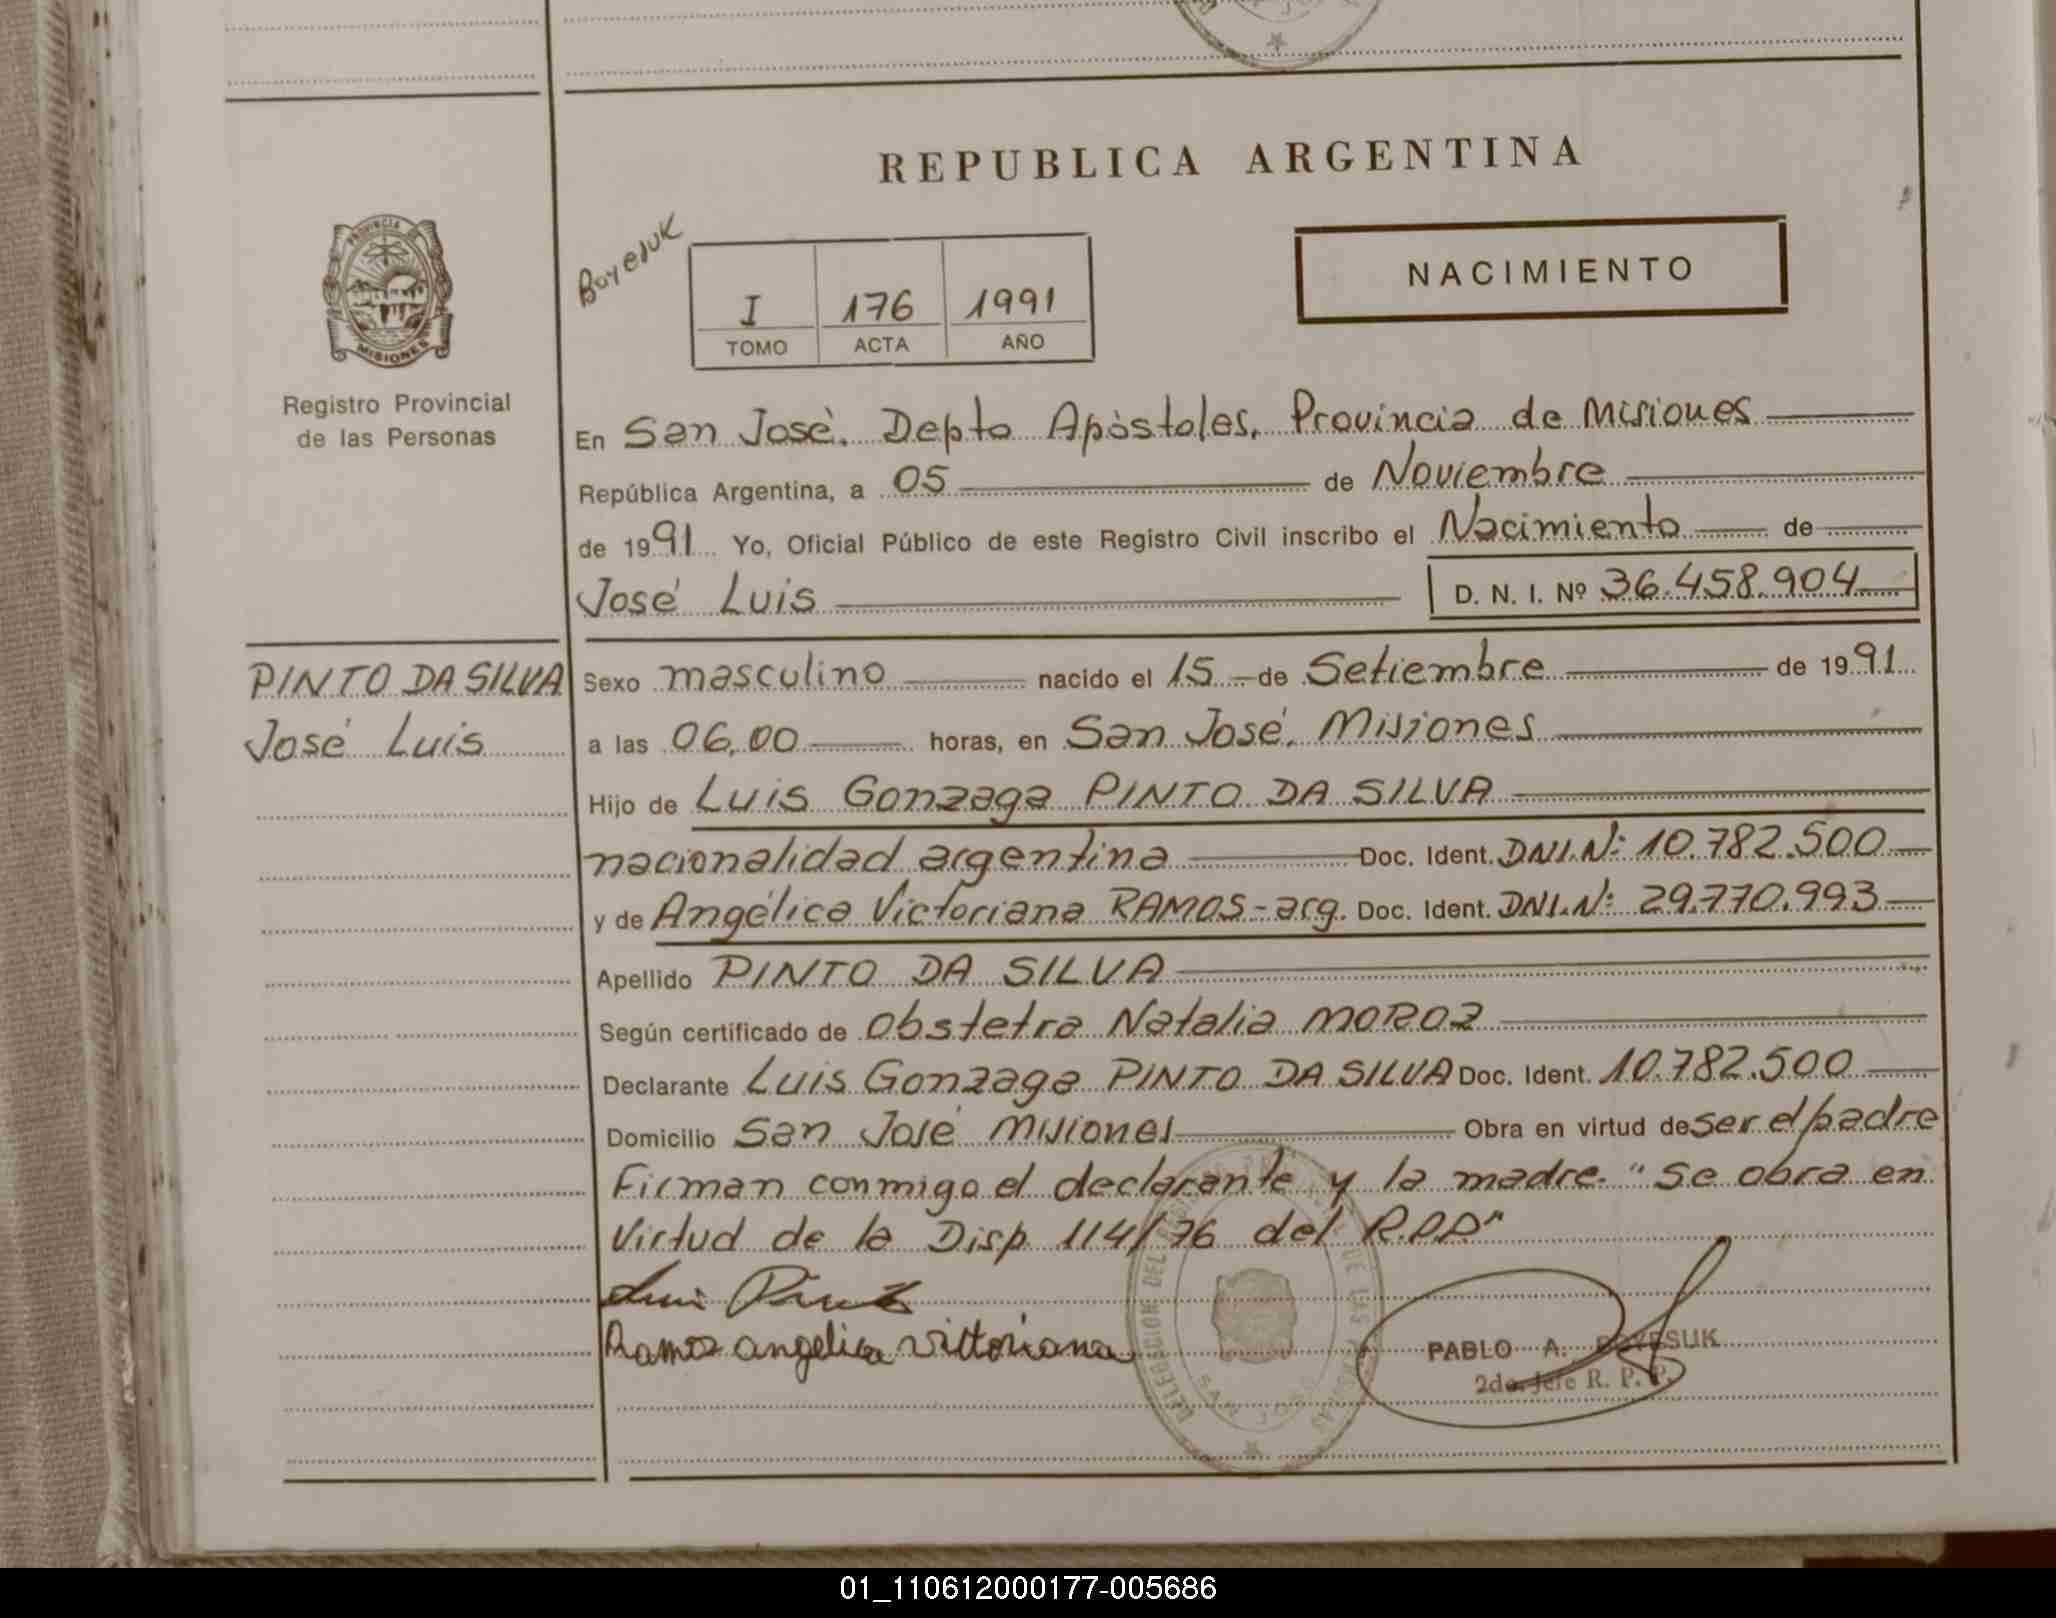 REPUBLICA ARGENTINA
PROVINCIA DE
MISIONES
Registro Provincial
de las Personas
Boyeduk
I 176 1991
TOMO ACTA AÑO
NACIMIENTO
En San José. Depto Apóstoles. Provincia de Misiones
República Argentina, a 05 de Noviembre
de 1991 Yo, Oficial Público de este Registro Civil inscribo el Nacimiento de
José Luis D. N. I. Nº 36.458.904
PINTO DA SILVA
José Luis
Sexo masculino nacido el 15 de Setiembre de 1991
a las 06,00 horas, en San José. Misiones
Hijo de Luis Gonzaga PINTO DA SILVA
nacionalidad argentina Doc. Ident. DNI.Nº: 10.782.500
y de Angélica Victoriana RAMOS - arg. Doc. Ident. DNI.Nº: 29.770.993
Apellido PINTO DA SILVA
Según certificado de Obstetra Natalia MOROZ
Declarante Luis Gonzaga PINTO DA SILVA Doc. Ident. 10.782.500
Domicilio San José Misiones Obra en virtud de ser el padre
Firman conmigo el declarante y la madre. "Se obra en
virtud de la Disp. 114/76 del R.P.P."
Luis Pinto
Ramos angelica Victoriana
DELEGACION DEL DE LAS
SAN JOSE
PABLO A. BOYESUK
2do. Jefe R. P. P.
01_110612000177-005686